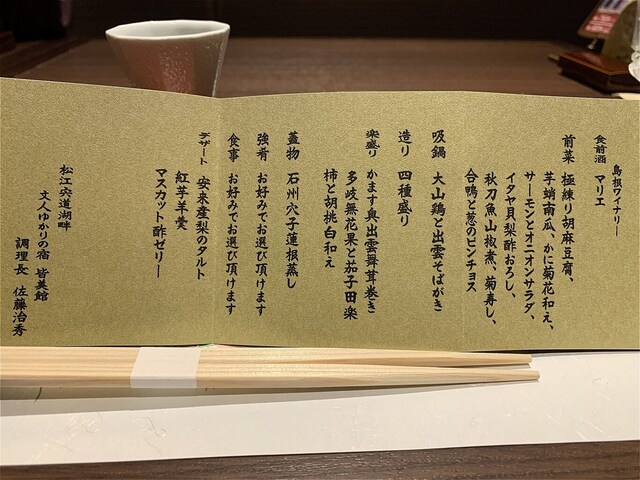 島根ワイナリー
食前酒 マリエ
前菜 極練り胡麻豆腐、
芋蛸南瓜、かに菊花和え、
サーモンとオニオンサラダ、
イタヤ貝梨酢おろし、
秋刀魚山椒煮、菊寿し、
合鴨と葱のピンチョス
吸鍋 大山鶏と出雲そばがき
造り 四種盛り
楽盛り かます奥出雲舞茸巻き
多岐無花果と茄子田楽
柿と胡桃白和え
蓋物 石州穴子蓮根蒸し
強肴 お好みでお選び頂けます
食事 お好みでお選び頂けます
デザート 安来産梨のタルト
紅芋羊羹
マスカット酢ゼリー
松江宍道湖畔
文人ゆかりの宿 皆美館
調理長 佐藤治秀